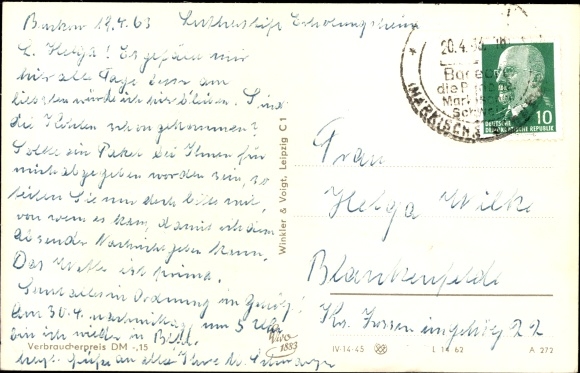 Buckow 19.4.63 Lutherstift Erholungsheim
L. Helga! Es gefällt mir
hier alle Tage besser am
liebsten würde ich hier bleiben. Sind
die Kohlen schon gekommen?
Sollte ein Paket bei Ihnen für
mich abgegeben worden sein, so
teilen Sie mir doch bitte mit,
von wem es kam, damit ich dem
Absender Nachricht geben kann.
Das Wetter ist prima.
Sonst alles in Ordnung
Am 30.4. nachmittag um 5 Uhr
bin ich wieder in
Grüße an alle Ihre
Verbraucherpreis DM -,15
Winkler & Voigt, Leipzig C 1
VuVo
1883
20.4.63 18
die
Märkische
(MÄRKISCHE
10
DEUTSCHE
DEMOKRATISCHE REPUBLIK
Frau
Helga Wilke
Blankenfelde
Krs. Zossen 22
IV-14-45
L 14 62
A 272